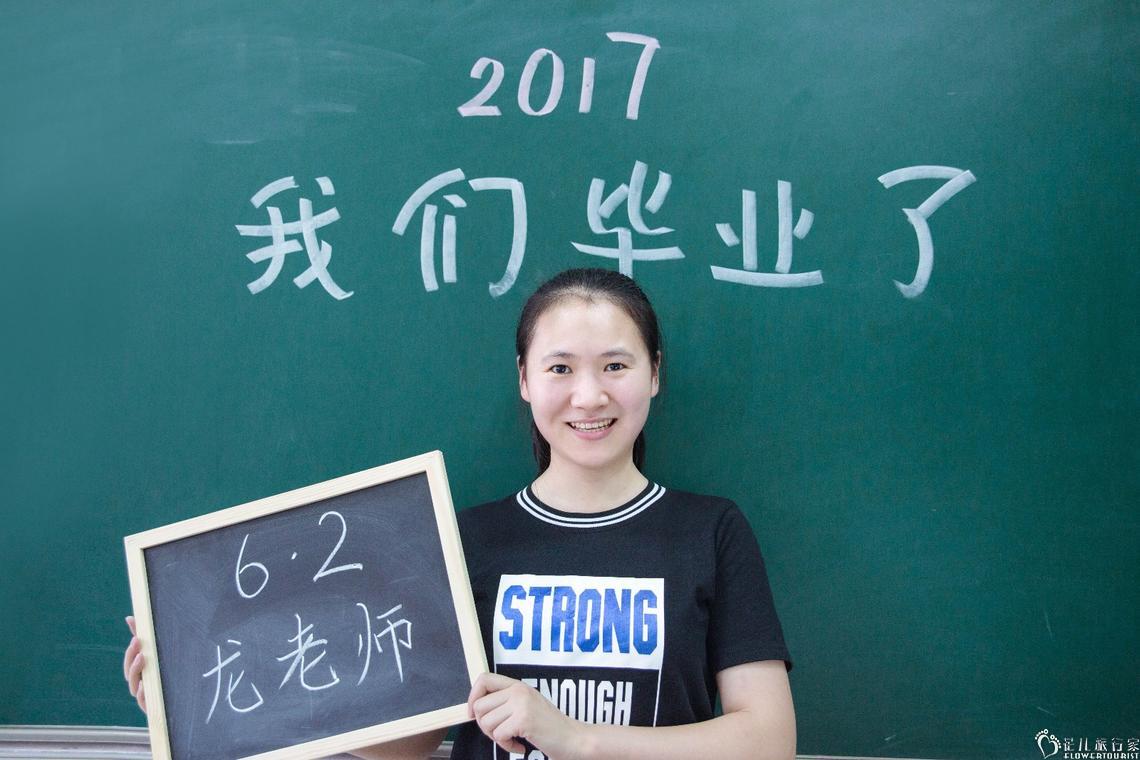 2017
我们毕业了
6.2
龙老师
STRONG
ENOUGH
FLOWERTOURIST